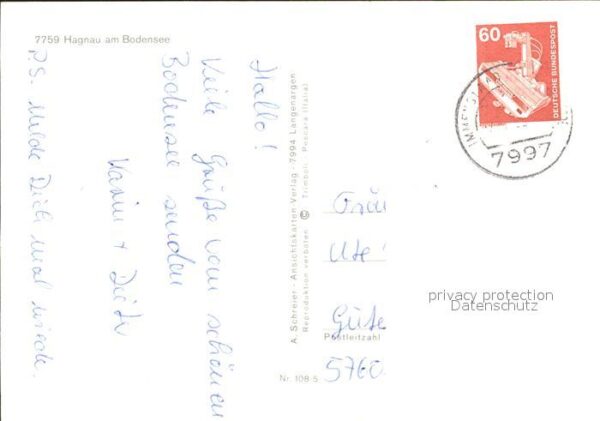 7759 Hagnau am Bodensee
Hallo!
Viele Grüße vom schönen
Bodensee senden
Karin + Dieter
P.S. Melde Dich mal wieder.
A. Schreier - Ansichtskarten Verlag - 7994 Langenargen
Reproduktion verboten © Trimboli - Pescara (Italia)
Nr. 108 5
60
DEUTSCHE BUNDESPOST
7997
Frau
Ute
Güte
Postleitzahl
5760
privacy protection
Datenschutz